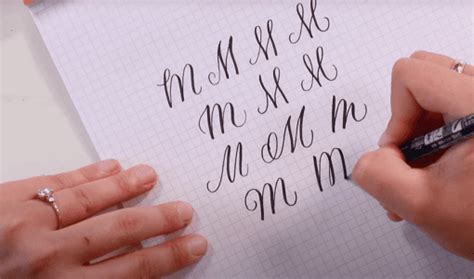 M M M M
M M M
M M M
M M